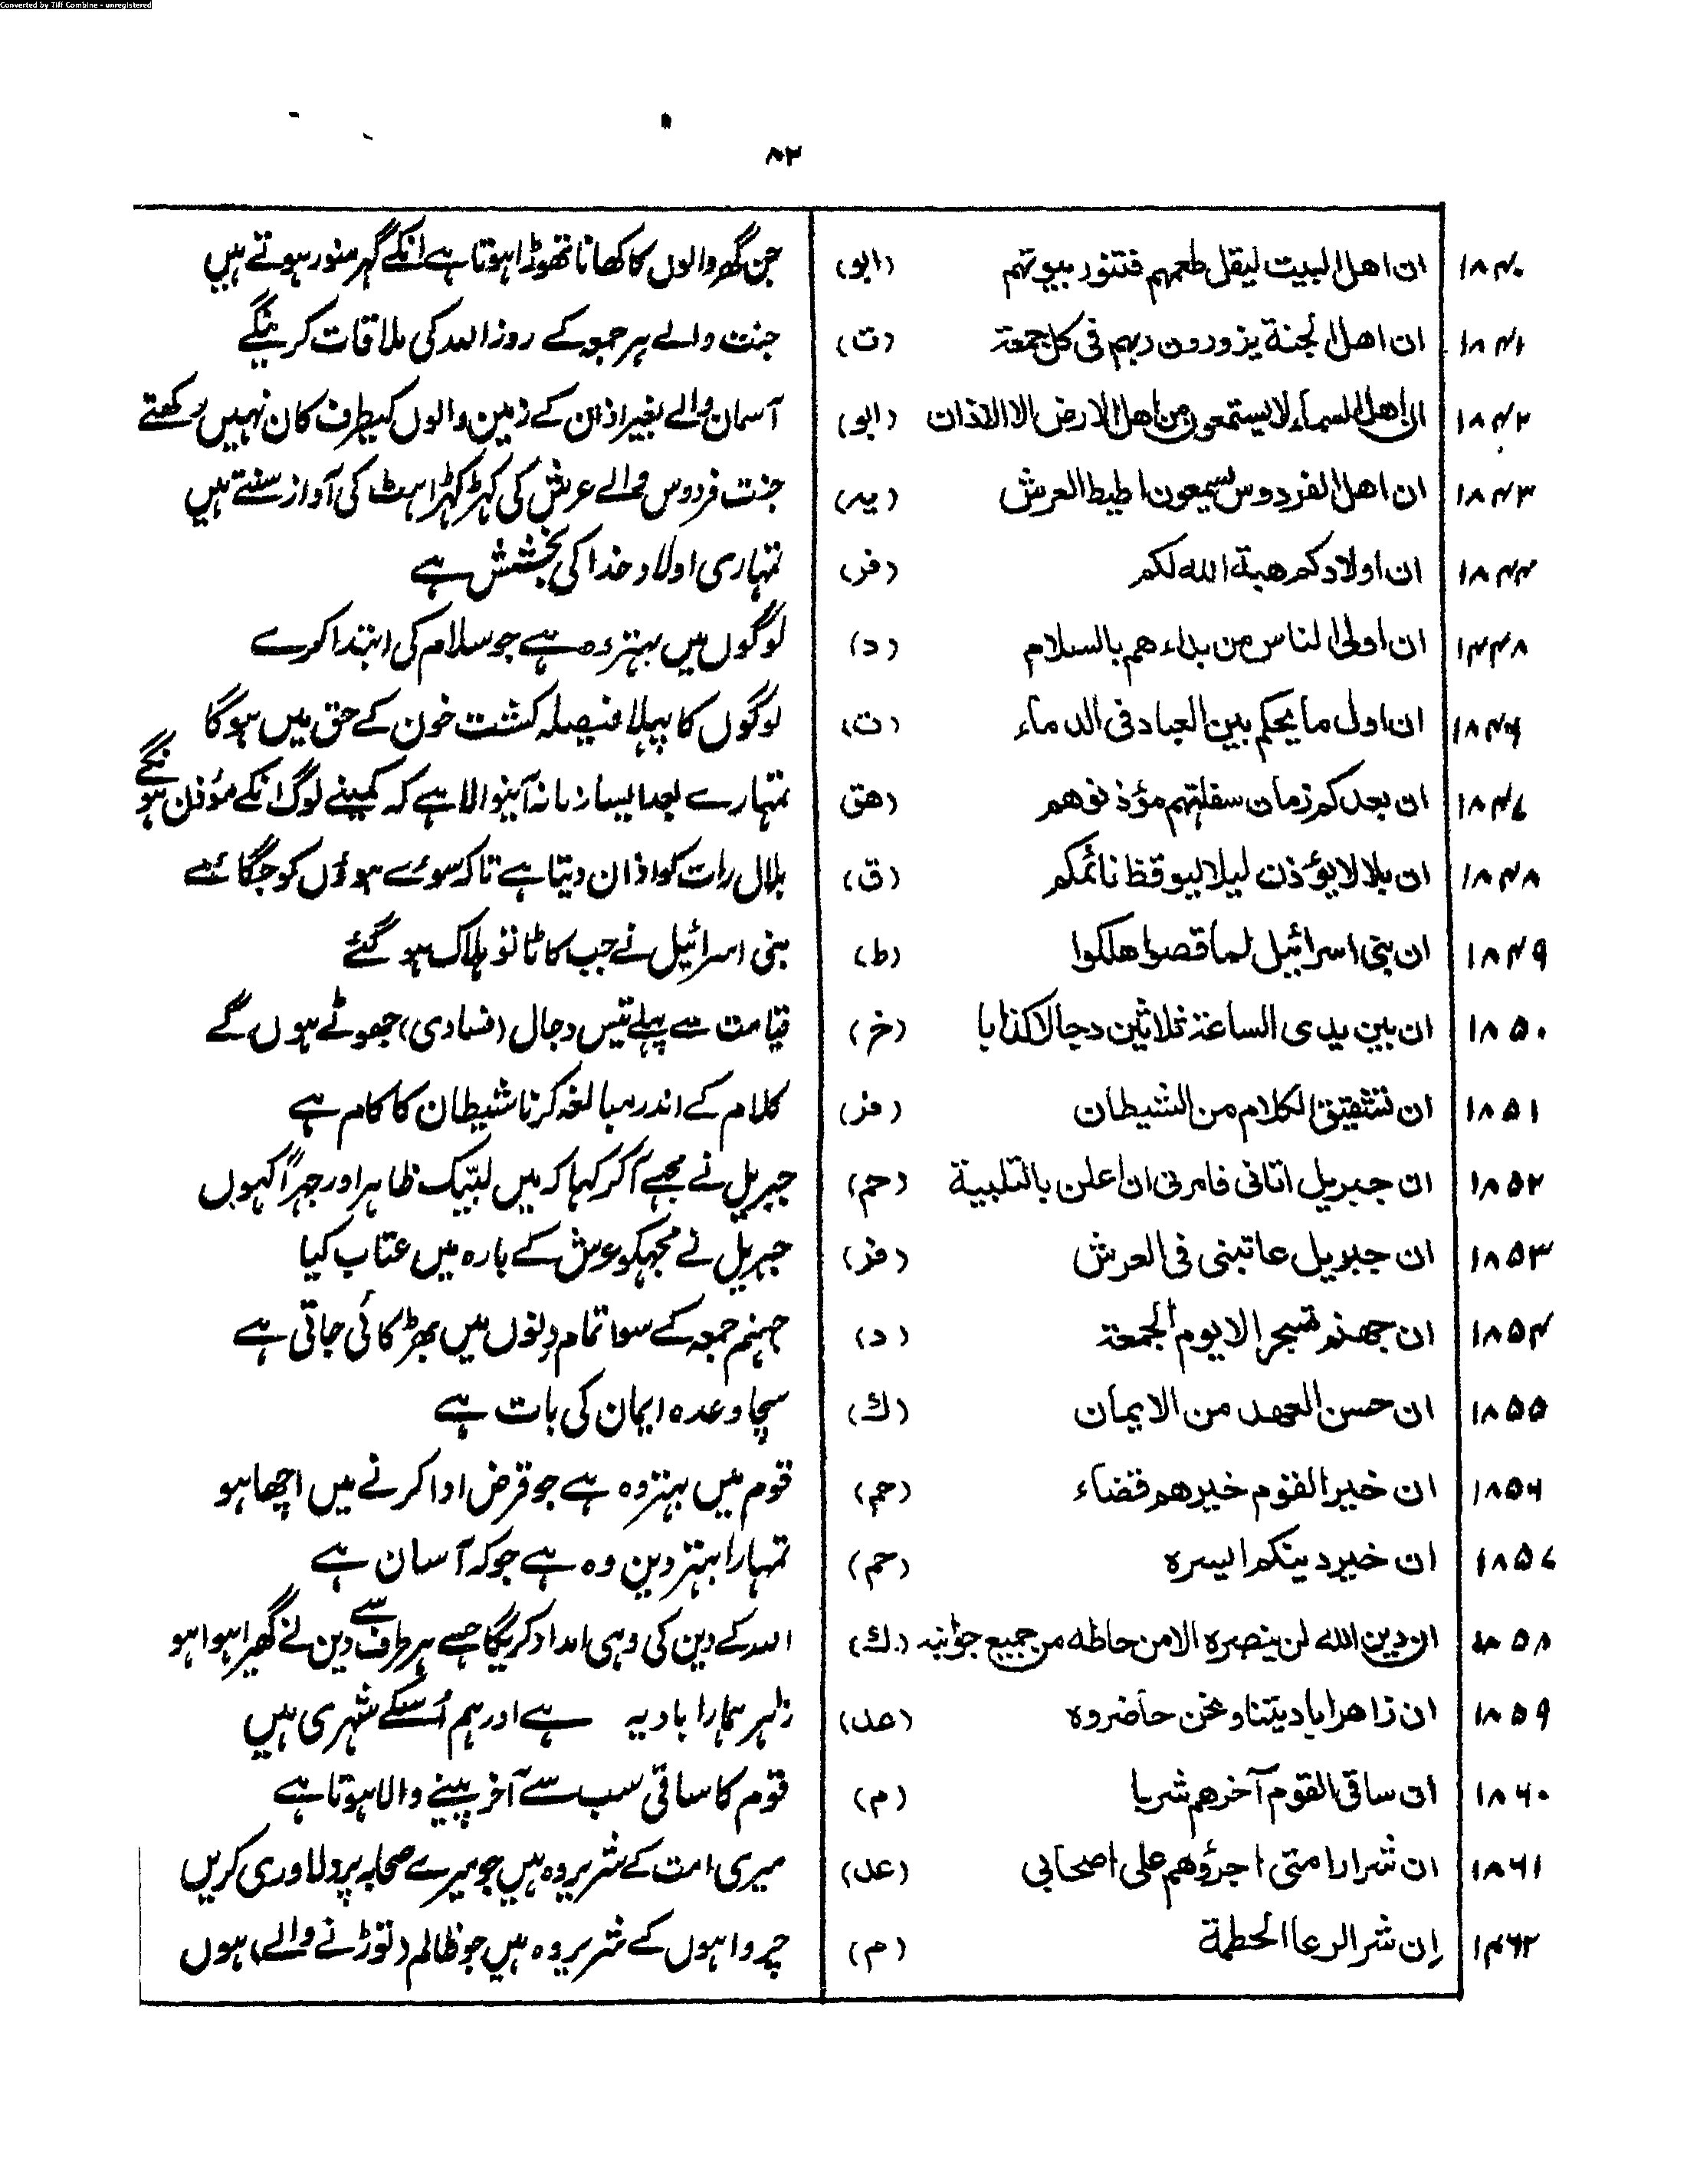 Converted by Tiff Combine - unregistered
۸۲
۱۸۴۰ ان اهل البيت ليقل طعمهم فتنور بيوتهم (ابو) جن گھر والوں کا کھانا تھوڑا ہوتا ہے انکے گہر منور ہوتے ہیں
۱۸۴۱ ان اهل الجنة يزورون ربهم فى كل جمعة (ت) جنت والے ہر جمعہ کے روز اللہ کی ملاقات کرینگے
۱۸۴۲ ان اهل السماء لا يستمعون من اهل الارض الا الاذان (ابو) آسمان والے بغیر اذان کے زمین والوں کیطرف کان نہیں رکھتے
۱۸۴۳ ان اهل الفردوس يسمعون اطيط العرش (يد) جنت فردوس والے عرش کی کہڑ کہڑاہٹ کی آواز سنتے ہیں
۱۸۴۴ ان اولادكم هبة الله لكم (فر) تمہاری اولاد خدا کی بخشش ہے
۱۴۴۸ ان اولى الناس من بداءهم بالسلام (د) لوگوں میں بہتر وہ ہے جو سلام کی ابتدا کرے
۱۸۴۶ ان اول ما يحكم بين العباد فى الدماء (ت) لوگوں کا پہلا فیصلہ کشت خون کے حق میں ہوگا
۱۸۴۷ ان بعدكم زمان سفلتهم مؤذنوهم (هق) تمہارے بعد ایسا زمانہ آنیوالا ہے کہ کمینے لوگ انکے مؤذن ہونگے
۱۸۴۸ ان بلالا يؤذن ليلا ليوقظ نائمكم (ق) بلال رات کو اذان دیتا ہے تاکہ سوئے ہوؤں کو جگائے
۱۸۴۹ ان بنى اسرائيل لما قصوا هلكوا (ط) بنی اسرائیل نے جب کاٹا تو ہلاک ہو گئے
۱۸۵۰ ان بين يدى الساعة ثلاثين دجالا كذابا (خ) قیامت سے پہلے تیس دجال (فسادی) جھوٹے ہوں گے
۱۸۵۱ ان تشقيق الكلام من الشيطان (فر) کلام کے اندر مبالغہ کرنا شیطان کا کام ہے
۱۸۵۲ ان جبريل اتانى فامرنى ان اعلن بالتلبية (حم) جبریل نے مجھے آکر کہا کہ میں لبیک ظاہر اور جہراً کہوں
۱۸۵۳ ان جبريل عاتبنى فى العرش (فر) جبریل نے مجہکو عرش کے بارہ میں عتاب کیا
۱۸۵۴ ان جهنم تسجر الا يوم الجمعة (د) جہنم جمعہ کے سوا تمام دنوں میں بھڑکائی جاتی ہے
۱۸۵۵ ان حسن العهد من الايمان (ك) سچا وعدہ ایمان کی بات ہے
۱۸۵۶ ان خير القوم خيرهم قضاء (حم) قوم میں بہتر وہ ہے جو قرض ادا کرنے میں اچھا ہو
۱۸۵۷ ان خير دينكم ايسره (حم) تمہارا بہتر دین وہ ہے جو کہ آسان ہے
۱۸۵۸ ان دين الله لن ينصره الا من حاطه من جميع جوانبه (ك) اللہ کے دین کی وہی امداد کریگا جسے ہر طرف سے دین نے گھیرا ہوا ہو
۱۸۵۹ ان زاهرا باديتنا ونحن حاضروه (عد) زاہر ہمارا بادیہ ہے اور ہم اُسکے شہری ہیں
۱۸۶۰ ان ساقى القوم آخرهم شربا (م) قوم کا ساقی سب سے آخر پینے والا ہوتا ہے
۱۸۶۱ ان شرار امتى اجرؤهم على اصحابى (عد) میری امت کے شریر وہ ہیں جو میرے صحابہ پر دلاوری کریں
۱۸۶۲ إن شر الرعا الحطمة (م) چرواہوں کے شریر وہ ہیں جو ظالم (توڑنے والے) ہوں